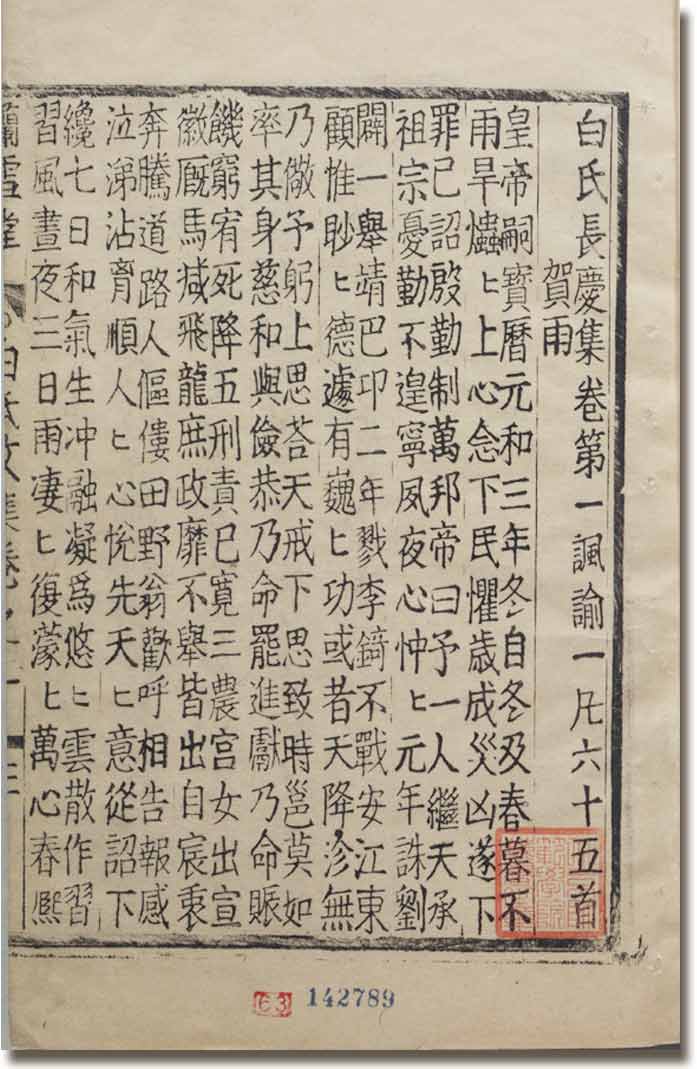 白氏長慶集卷第一諷諭一凡六十五首
賀雨
皇帝嗣寳曆元和三年冬自冬及春暮不
雨旱爞〻上心念下民懼歲成災凶遂下
罪己詔殷勤制萬邦帝曰予一人繼天承
祖宗憂勤不遑寧夙夜心忡〻元年誅劉
闢一舉靖巴卭二年戮李錡不戰安江東
顧惟眇〻德遽有巍〻功或者天降沴無
乃儆予躬上思荅天戒下思致時邕莫如
率其身慈和與儉恭乃命罷進獻乃命賑
饑窮宥死降五刑責己寬三農宮女出宣
徽厩馬减飛龍庶政靡不舉皆出自宸衷
奔騰道路人傴僂田野翁歡呼相告報感
泣涕沾胷順人〻心悅先天〻意從詔下
纔七日和氣生冲融凝爲悠〻雲散作習
習風晝夜三日雨凄〻復濛〻萬心春熈
蘭雪堂
白氏文集卷之一
63 142789